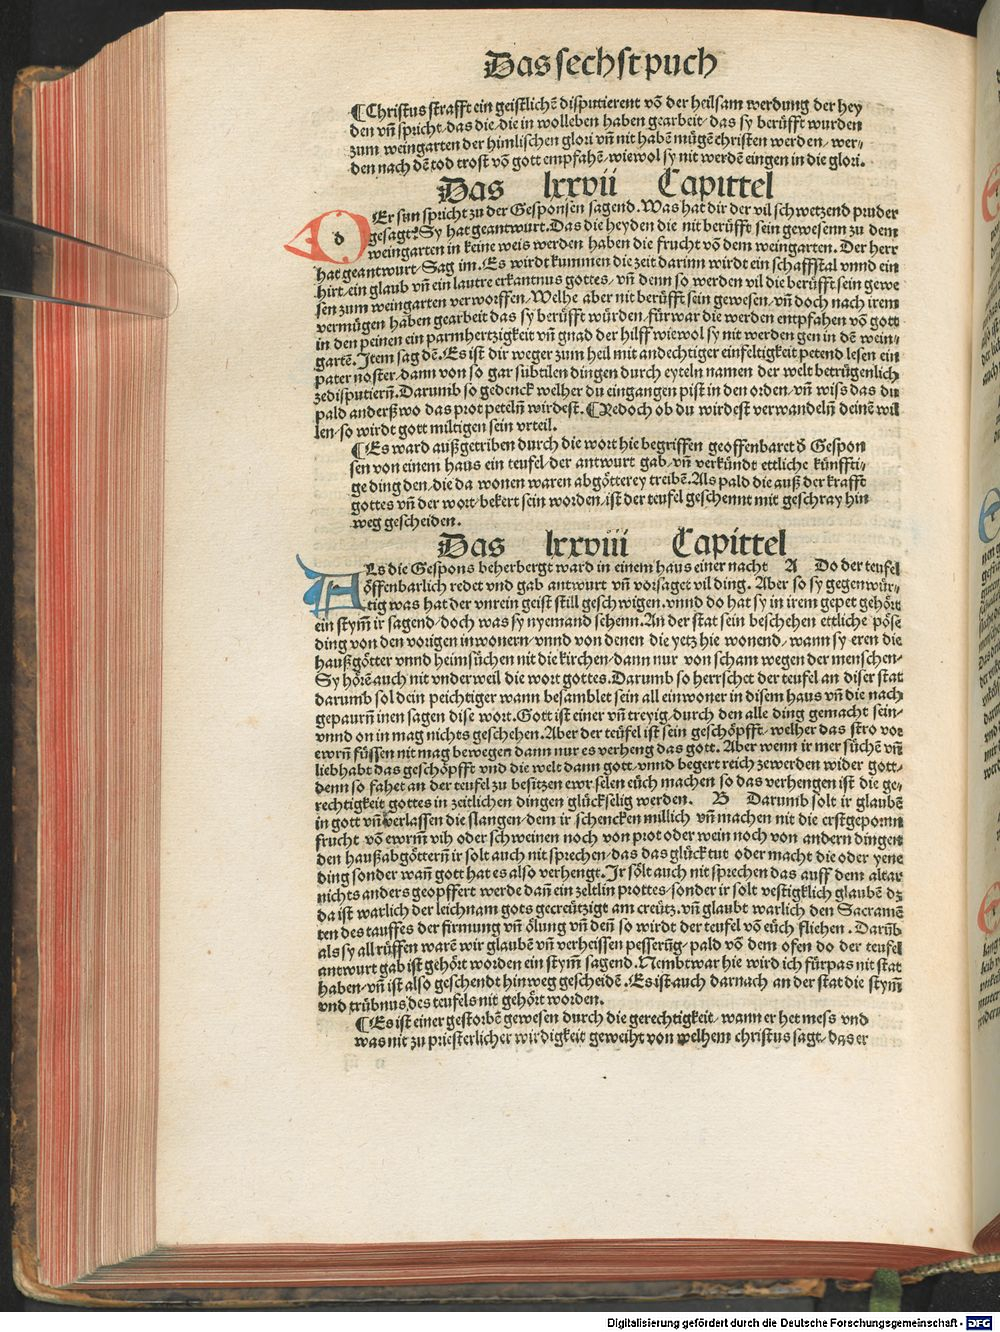 Das sechst puch
¶ Christus strafft ein geistlichē disputierent võ der heilsam werdung der hey
den vñ spricht/das die/die in wolleben haben gearbeit/das sy berüfft wurden
zum weingarten der himlischen glori vñ nit habē mügē christen werden/wer⸗
den nach dē tod trost võ gott empfahē/wiewol sy nit werdē eingen in die glori.
Das lxxvii Capittel
dEr sun spricht zu der Gesponsen sagend. Was hat dir der vil schwetzend pruder
gesagt? Sy hat geantwurt. Das die heyden die nit berüfft sein gewesenn zu dem
weingarten in keine weis werden haben die frucht võ dem weingarten. Der herr
hat geantwurt/Sag im. Es wirdt kummen die zeit darinn wirdt ein schaffstal vnnd ein
hirt/ein glaub vñ ein lautre erkantnus gottes/vñ denn so werden vil die berüfft sein gewe
sen zum weingarten verworffen/Welhe aber nit berüfft sein gewesen/vñ doch nach irem
vermügen haben gearbeit das sy berüfft würden/fürwar die werden entpfahen võ gott
in den peinen ein parmhertzigkeit vñ gnad der hilff wiewol sy nit werden gen in dē wein⸗
gartē. Item sag dē. Es ist dir weger zum heil mit andechtiger einfeltigkeit petend lesen ein
pater noster/dann von so gar subtilen dingen durch eyteln namen der welt betrügenlich
zedisputierñ. Darumb so gedenck welher du eingangen pist in den orden/vñ wiss das du
pald anderßwo das prot petelñ wirdest. ¶ Yedoch ob du wirdest verwandelñ deinē wil
len/so wirdt gott miltigen sein vrteil.
¶ Es ward außgetriben durch die wort hie begriffen geoffenbaret ð Gespon
sen von einem haus ein teufel/der antwurt gab/vñ verkündt ettliche künffti⸗
ge ding den/die da wonen waren abgötterey treibē. Als pald die auß der krafft
gottes vñ der wort/bekert sein worden/ist der teufel geschennt mit geschray hin
weg gescheiden.
Das lxxviii Capittel
ALs die Gespons beherbergt ward in einem haus einer nacht A Do der teufel
öffenbarlich redet vnd gab antwurt vñ vorsaget vil ding. Aber so sy gegenwür⸗
tig was hat der vnrein geist still geschwigen. vnnd do hat sy in irem gepet gehört
ein stym̃ ir sagend/doch was sy nyemand sehenn. An der stat sein beschehen ettliche pöse
ding von den vorigen inwonern/vnnd von denen die yetz hie wonend/wann sy eren die
haußgötter vnnd heimsüchen nit die kirchen/dann nur von scham wegen der menschen⸗
Sy hörē auch nit vnderweil die wort gottes. Darumb so herrschet der teufel an diser stat
darumb sol dein peichtiger wann besamblet sein all einwoner in disem haus vñ die nach
gepaurñ inen sagen dise wort. Gott ist einer vñ treyig/durch den alle ding gemacht sein⸗
vnnd on in mag nichts geschehen. Aber der teüfel ist sein geschöpfft/welher das stro vor
ewrñ füssen nit mag bewegen dann nur es verheng das gott. Aber wenn ir mer süchē vñ
liebhabt das geschöpfft vnd die welt dann gott/vnnd begert reich zewerden wider gott⸗
denn so fahet an der teufel zu besitzen ewr selen eüch machen so das verhengen ist die ge⸗
rechtigkeit gottes in zeitlichen dingen glückselig werden. B Darumb solt ir glaubē
in gott vñ verlassen die slangen/dem ir schencken millich vñ machen nit die erstgepornn
frucht võ ewrm̃ vih oder schweinen noch von prot oder wein noch von andern dingen
den haußabgötterñ ir solt auch nit sprechen/das das glück tut oder macht die oder yene
ding sonder wañ gott hat es also verhengt. Ir sölt auch nit sprechen das auff dem altar
nichts anders geopffert werde dañ ein zeltlin prottes/sonder ir solt vestigklich glaubē dz
da ist warlich der leichnam gots gecreützigt am creütz. vñ glaubt warlich den Sacramē
ten des tauffes der firmung vñ ölung vñ deñ so wirdt der teufel võ eüch fliehen. Darūb
als sy all rüffen warē wir glaubēn vñ verheissen pesserũg/pald võ dem ofen do der teufel
antwurt gab ist gehört worden ein stym̃ sagend. Nembt war hie wird ich fürpas nit stat
haben/vñ ist also geschendt hinweg gescheidē. Es ist auch darnach an der stat die stym̃
vnd trübnus des teufels nit gehört worden.
¶ Es ist einer gestorbē gewesen durch die gerechtigkeit/wann er het mess vnd
was nit zu priesterlicher wirdigkeit geweiht von welhem christus sagt/das er
Digitalisierung gefördert durch die Deutsche Forschungsgemeinschaft - DFG